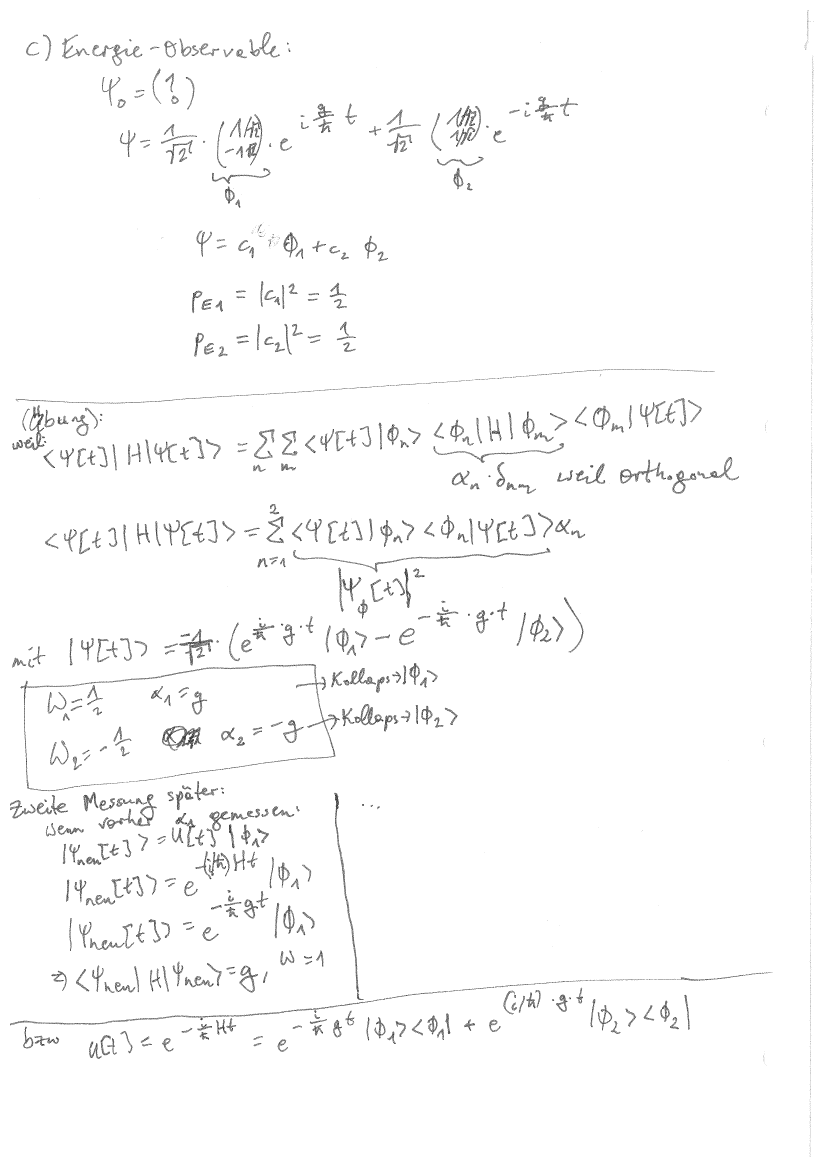 c) Energie-Observable:
Ψ₀ = (1 0)
Ψ = 1/√2 · (1/√2 -1/√2) · e^{i g/ħ t} + 1/√2 (1/√2 1/√2) · e^{-i g/ħ t}
ϕ₁ ϕ₂
Ψ = c₁ ϕ₁ + c₂ ϕ₂
P_{E1} = |c₁|² = 1/2
P_{E2} = |c₂|² = 1/2
(Übung):
weil: <Ψ[t]|H|Ψ[t]> = Σ_n Σ_m <Ψ[t]|ϕ_n> <ϕ_n|H|ϕ_m> <ϕ_m|Ψ[t]>
α_n · δ_{nm} weil orthogonal
<Ψ[t]|H|Ψ[t]> = Σ_{n=1}^{2} <Ψ[t]|ϕ_n> <ϕ_n|Ψ[t]> α_n
|Ψ_ϕ[t]|²
mit |Ψ[t]> = -1/√2 · (e^{i/ħ · g · t} |ϕ₁> - e^{-i/ħ · g · t} |ϕ₂>)
W₁ = 1/2 α₁ = g → Kollaps → |ϕ₁>
W₂ = -1/2 α₂ = -g → Kollaps → |ϕ₂>
Zweite Messung später: ...
wenn vorher α₁ gemessen:
|Ψ_{neu}[t]> = U[t] |ϕ₁>
|Ψ_{neu}[t]> = e^{-(i/ħ)Ht} |ϕ₁>
|Ψ_{neu}[t]> = e^{-i/ħ gt} |ϕ₁>
⇒ <Ψ_{neu}|H|Ψ_{neu}> = g, W = 1
bzw U[t] = e^{-i/ħ Ht} = e^{-i/ħ gt} |ϕ₁><ϕ₁| + e^{(i/ħ) · g · t} |ϕ₂><ϕ₂|